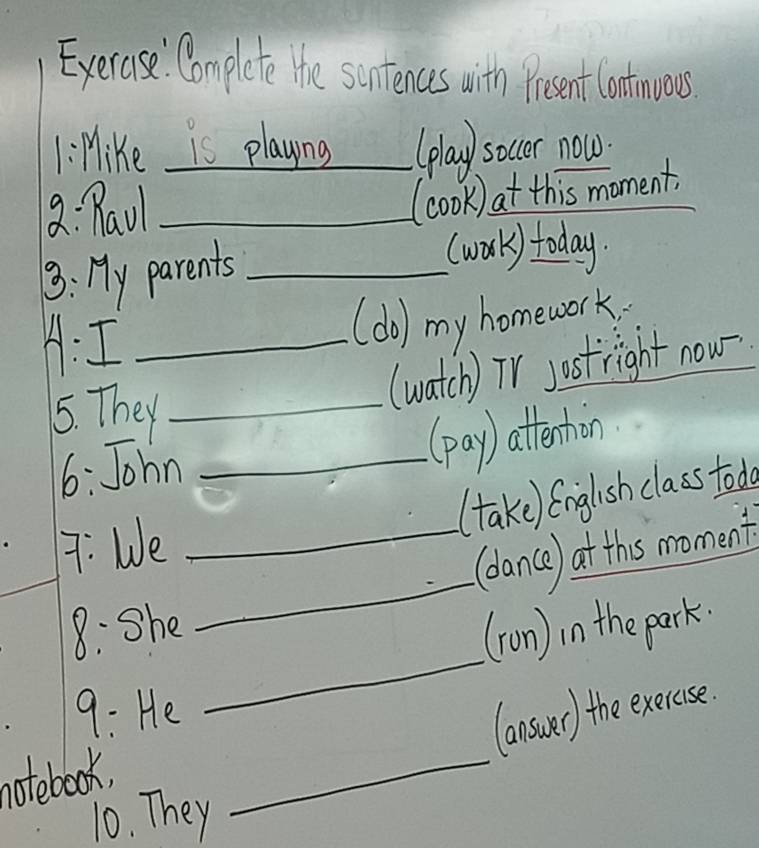 Exercise: Complete the sentences with Present Continuous.
1: Mike is playing (play) soccer now.
2: Raul __________ (cook) at this moment.
3: My parents __________ (work) today.
4: I __________ (do) my homework.
5. They __________ (watch) TV just right now.
6: John __________ (pay) attention.
7: We __________ (take) English class toda
8: She __________ (dance) at this moment.
9: He __________ (run) in the park.
notebook,
10. They __________ (answer) the exercise.